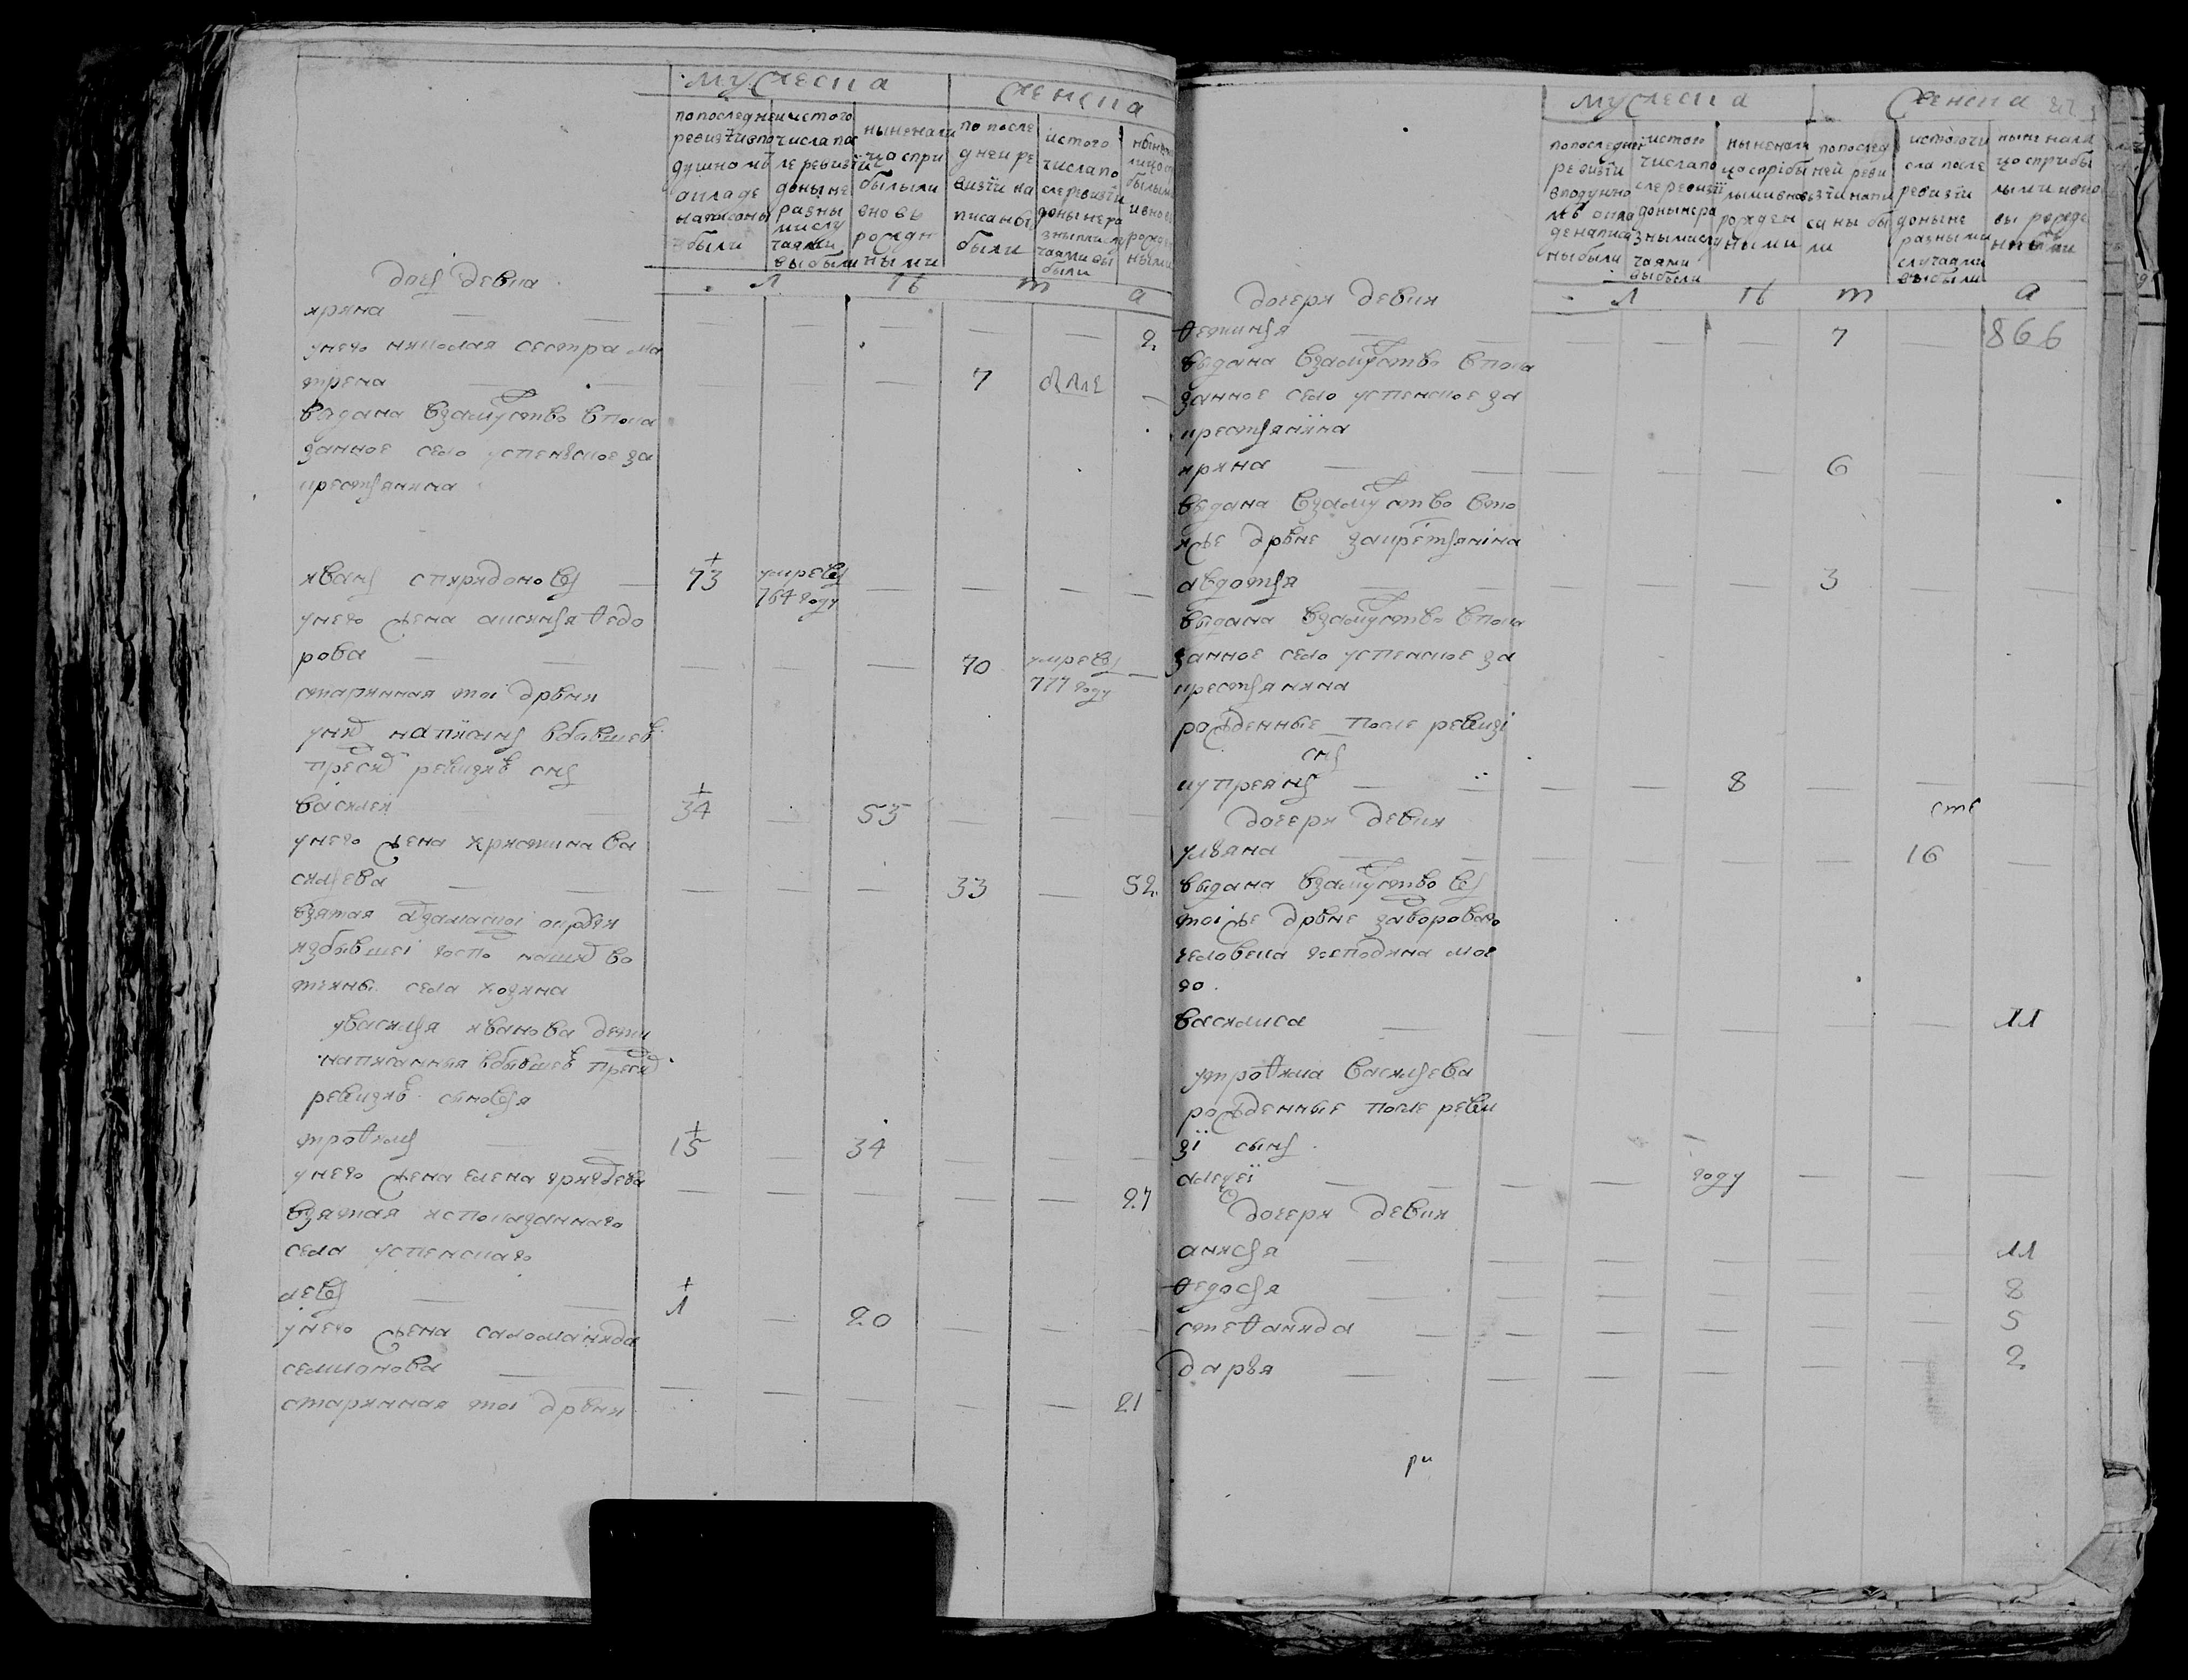 мужеска
женска
по последней
ревизии в по
душномъ
окладе
написаны
были
ис того
числа по
сле ревизии
до ныне
разны
ми слу
чаями
выбыли
ныне нали
цо с при
былыми
вновь
рожден
ными
по после
дней ре
визии на
писаны
были
ис того
числа по
сле ревизии
до ныне ра
зными слу
чаями вы
были
ныне
лицо с
былым
и вновь
рожд
ными
л ѣ т а
дочь девка
ирина — — — — — — — 2
у него николая сестра ма
трена — — 7
выдана взамужство в пока
занное село успенское за
крестьянина
иванъ спиридоновъ — 73 умре въ
764 году
у него жена аксинья ѳедо
рова — — — — — 70 умре въ
777 году
старинная той дрвни
у них написаны в бывшею
пред ревизию снъ
василей 34 — 53 — — —
у него жена христина ва
сильева — — — — — 33 — 52
взятая округи
из бывшей госпо наших во
тчины села
у василья иванова дети
написанныя в бывшею пред
ревизию сыновья
троѳимъ 15 — 34 — — —
у него жена елена
— — — — — 27
взятая ис показанного
села успенскаго
левъ — — 1 — 20 — — —
у него жена соломанида
семионова — — — — — — — 21
старинная той дрвни
мужеска
женска
по последней
ревизии
в подушно
мъ окла
де написа
ны были
ис того
числа по
сле ревизии
до ныне ра
зными слу
чаями
выбыли
ныне нали
цо с прибы
лыми вновь
рожден
ными
по послед
ней реви
зии напи
саны бы
ли
ис того чи
сла после
ревизии
до ныне
разными
случаями
выбыли
ныне нали
цо с прибы
лыми и вно
вь рожде
нными
л ѣ т а
дочери девки
— — — 7 — 866
выдана взамужство в пока
занное село успенское за
крестьянина
ирина — — — — — 6 —
выдана взамужство в то
й же дрвне за крестьянина
авдотья — — — — 3 — —
выдана взамужство в пока
занное село успенское за
крестьянина
рожденные после ревизи
снъ
куприянъ — — — 8 — — —
дочери девки
ульяна — — — — 16 —
выдана взамужство въ
той же дрвне за дворового
человека господина мое
го
василиса — — — — — — 11
у троѳима васильева
рожденные после реви
зї сынъ
алеѯей — — — — году — — —
дочери девки
анисья — — — — — — 11
ѳедосья — — — — — — 8
стеѳанида — — — — — — 5
дарья — — — — — — 2